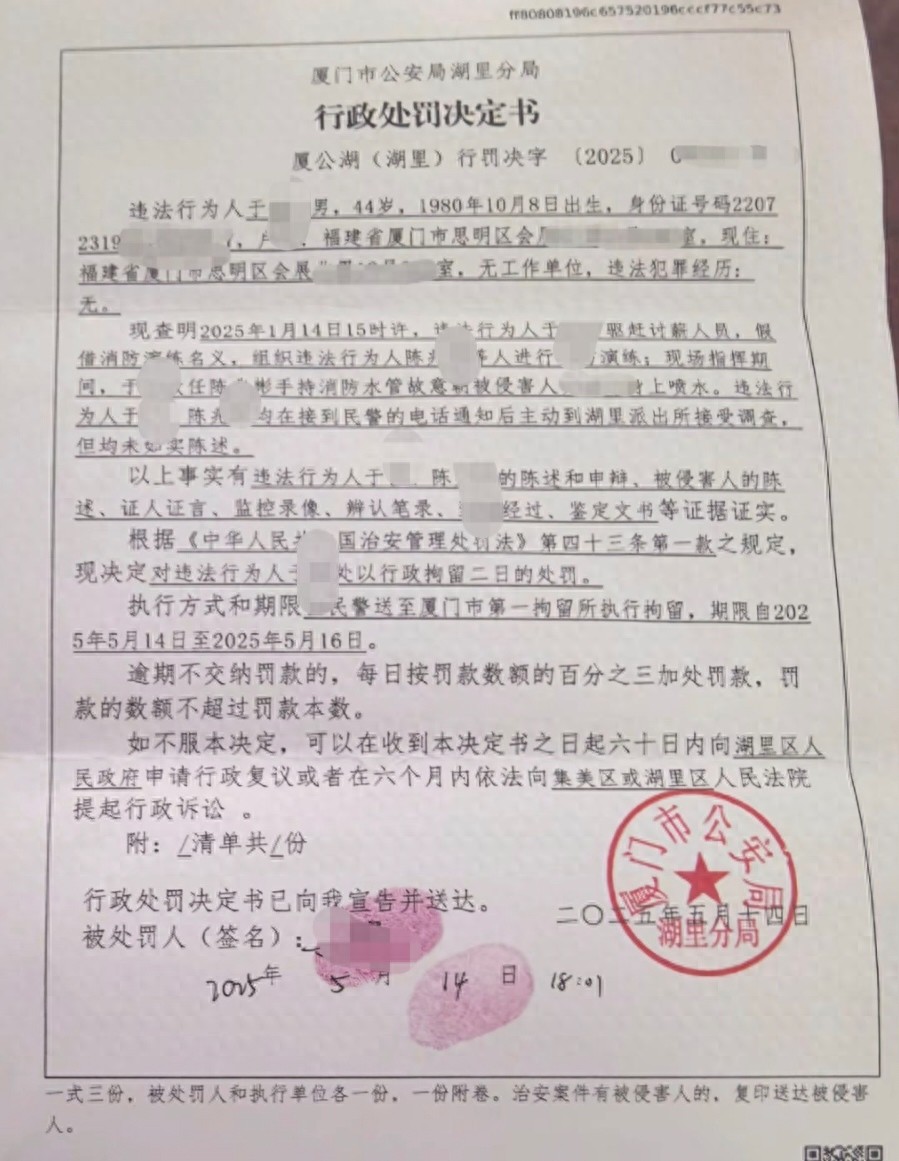 ff80808196c657520196cccf77c55c73
厦门市公安局湖里分局
行政处罚决定书
厦公湖（湖里）行罚决字 〔2025〕
违法行为人于 男，44岁，1980年10月8日出生，身份证号码2207
2319 福建省厦门市思明区会 室，现住：
福建省厦门市思明区会展 室，无工作单位，违法犯罪经历：
无。
现查明2025年1月14日15时许，违法行为人于 驱赶讨薪人员，假
借消防演练名义，组织违法行为人陈 等人进行 演练；现场指挥期
间，于 放任陈 彬手持消防水管故意朝被侵害人 身上喷水。违法行
为人于 陈 均在接到民警的电话通知后主动到湖里派出所接受调查，
但均未如实陈述。
以上事实有违法行为人于 、陈 的陈述和申辩、被侵害人的陈
述、证人证言、监控录像、辨认笔录、 经过、鉴定文书等证据证实。
根据《中华人民共 国治安管理处罚法》第四十三条第一款之规定，
现决定对违法行为人于 处以行政拘留二日的处罚。
执行方式和期限 民警送至厦门市第一拘留所执行拘留，期限自202
5年5月14日至2025年5月16日。
逾期不交纳罚款的，每日按罚款数额的百分之三加处罚款，罚
款的数额不超过罚款本数。
如不服本决定，可以在收到本决定书之日起六十日内向湖里区人
民政府申请行政复议或者在六个月内依法向集美区或湖里区人民法院
提起行政诉讼 。
附：/清单共/份
行政处罚决定书已向我宣告并送达。
被处罚人（签名）：
2025年 5 月 14 日 18:01
二〇二五年五月十四日
厦门市公安局
湖里分局
一式三份，被处罚人和执行单位各一份，一份附卷。治安案件有被侵害人的，复印送达被侵害
人。